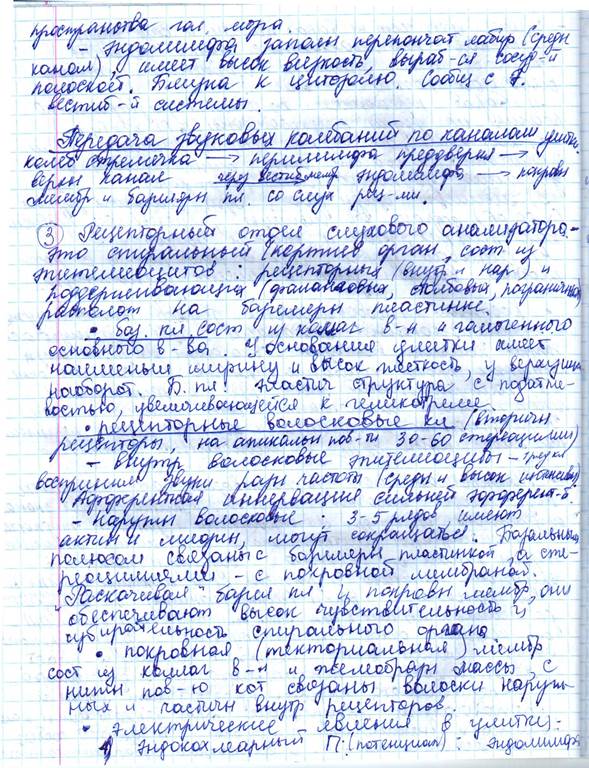 пространства гол. мозга.
- Эндолимфа заполн перепончат лабир (средн
канал), имеет высок вязкость, выраб-ся сосуд-й
полоской. Близка к цитозолю. Сообщ с
вестиб-й системы.
Передача звуковых колебаний по каналам улитки.
колеб стремечка → перилимфа преддверия →
верхн канал через вестиб мемб эндолимфа → покровн
мембр и базилярн пл. со слух рец-ми.
③ Рецепторный отдел слухового анализатора -
это спиральный (кортиев орган, сост из
эпителиоцитов: рецепторных (внутр и нар.) и
поддерживающих (фаланговых, столбовых, пограничных)
располож на базилярн пластинке.
• баз. пл. сост из коллаг в-н и гомогенного
основного в-ва. У основания улитки имеет
наименьш ширину и высок жесткость, у верхушки
наоборот. Б. пл эластич структура с податли-
востью, увеличивающейся к геликотреме
• рецепторные волосковые кл (вторичн
рецепторы, на апикальн пов-ти 30-60 стереоцилий)
- внутр волосковые эпителиоциты -
восприним звуки разн частоты (средн и высок интенсивн)
Афферентная иннервация сильней эфферент-й
- наружн волосковые: 3-5 рядов, имеют
актин и миозин, могут сокращаться. Базальным
полюсом связаны с базилярн пластинкой, а сте-
реоцилиями - с покровной мембраной.
"Раскачивая" базил пл и покровн мембр, они
обеспечивают высок чувствительность и
избирательность спирального органа
• покровная (текториальная) мембр
сост из коллаг в-н и желеобразн массы, с
нижн пов-ю кот связаны волоски наруж-
ных и частичн внутр рецепторов.
• электрические явления в улитке:
1) Эндокохлеарный П: (потенциал): эндолимфа